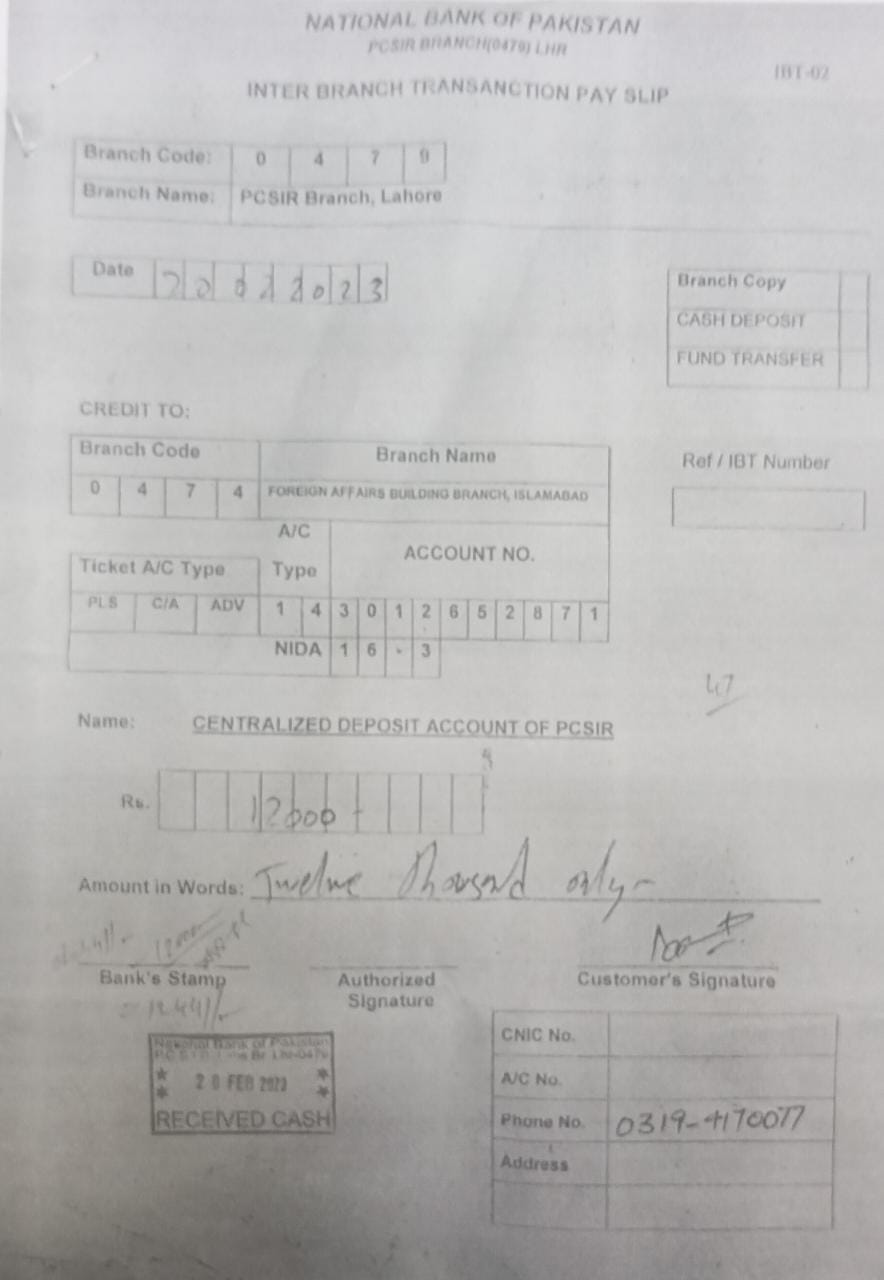 NATIONAL BANK OF PAKISTAN
PCSIR BRANCH(0479) LHR
IBT-02
INTER BRANCH TRANSANCTION PAY SLIP
Branch Code: 0 4 7 9
Branch Name: PCSIR Branch, Lahore
Date 20022023
Branch Copy
CASH DEPOSIT
FUND TRANSFER
CREDIT TO:
Branch Code Branch Name
Ref / IBT Number
0 4 7 4 FOREIGN AFFAIRS BUILDING BRANCH, ISLAMABAD
A/C
ACCOUNT NO.
Ticket A/C Type Type
PLS C/A ADV 1 4 3 0 1 2 6 5 2 8 7 1
NIDA 1 6 - 3
47
Name: CENTRALIZED DEPOSIT ACCOUNT OF PCSIR
Rs. 12000
Amount in Words: Twelve Thousand only-
12000
Bank's Stamp Authorized Customer's Signature
Signature
1244/-
National Bank of Pakistan
CNIC No.
20 FEB 2023
A/C No.
RECEIVED CASH
Phone No. 0319-4170077
Address